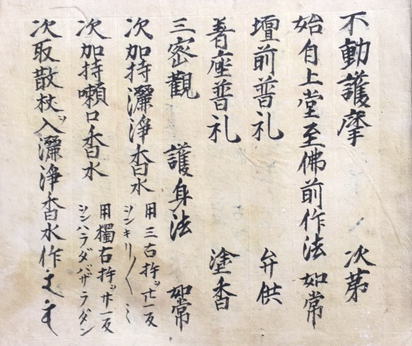 不動護摩 次第
始自上堂至佛前作法 如常
壇前普礼 弁供
著座普礼 塗香
三密觀 護身法 如常
次加持灑淨香水 用三古杵ヲ廿一反
シンキリ〱
次加持嗽口香水 用獨古杵ヲ廿一反
シンハラダバザラダン
次取散杖ヲ入灑淨香水作